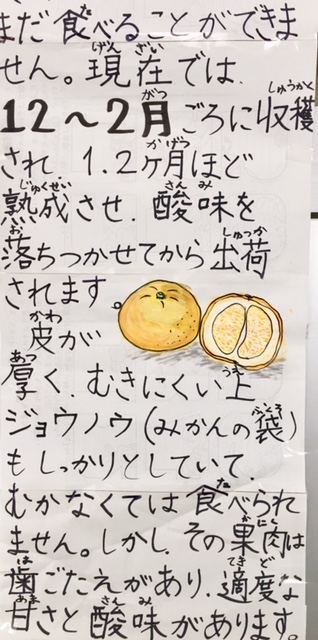 まだ食べることができま
せん。現在では、
12～2月ごろに収穫
され、1.2ヶ月ほど
熟成させ、酸味を
落ちつかせてから出荷
されます。
皮が
厚く、むきにくい上
ジョウノウ(みかんの袋)
もしっかりとしていて、
むかなくては食べられ
ません。しかし、その果肉は
歯ごたえがあり、適度な
甘さと酸味があります。